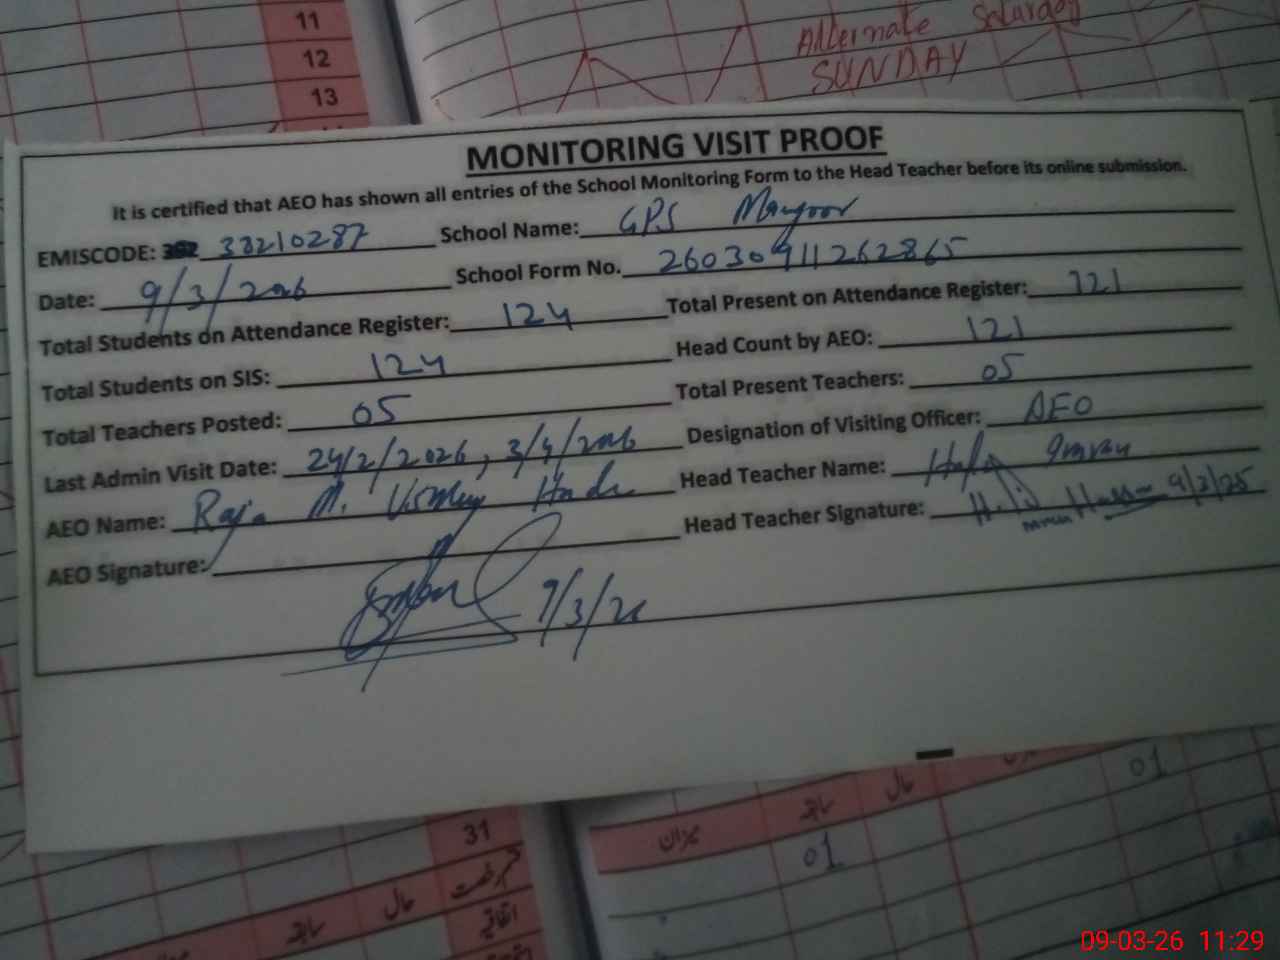 11
12
13
Alternate Saturday
SUNDAY
MONITORING VISIT PROOF
It is certified that AEO has shown all entries of the School Monitoring Form to the Head Teacher before its online submission.
EMISCODE: 38210287 School Name: GPS Mangoor
Date: 9/3/2026 School Form No. 26030911262865
Total Students on Attendance Register: 124 Total Present on Attendance Register: 121
Total Students on SIS: 124 Head Count by AEO: 121
Total Teachers Posted: 05 Total Present Teachers: 05
Last Admin Visit Date: 24/2/2026, 3/4/2026 Designation of Visiting Officer: AEO
AEO Name: Raja M. Head Teacher Name: Imran
AEO Signature: Head Teacher Signature: 9/3/25
9/3/26
01
میزان سابقہ حال
01
31
حال
سابقہ
09-03-26 11:29